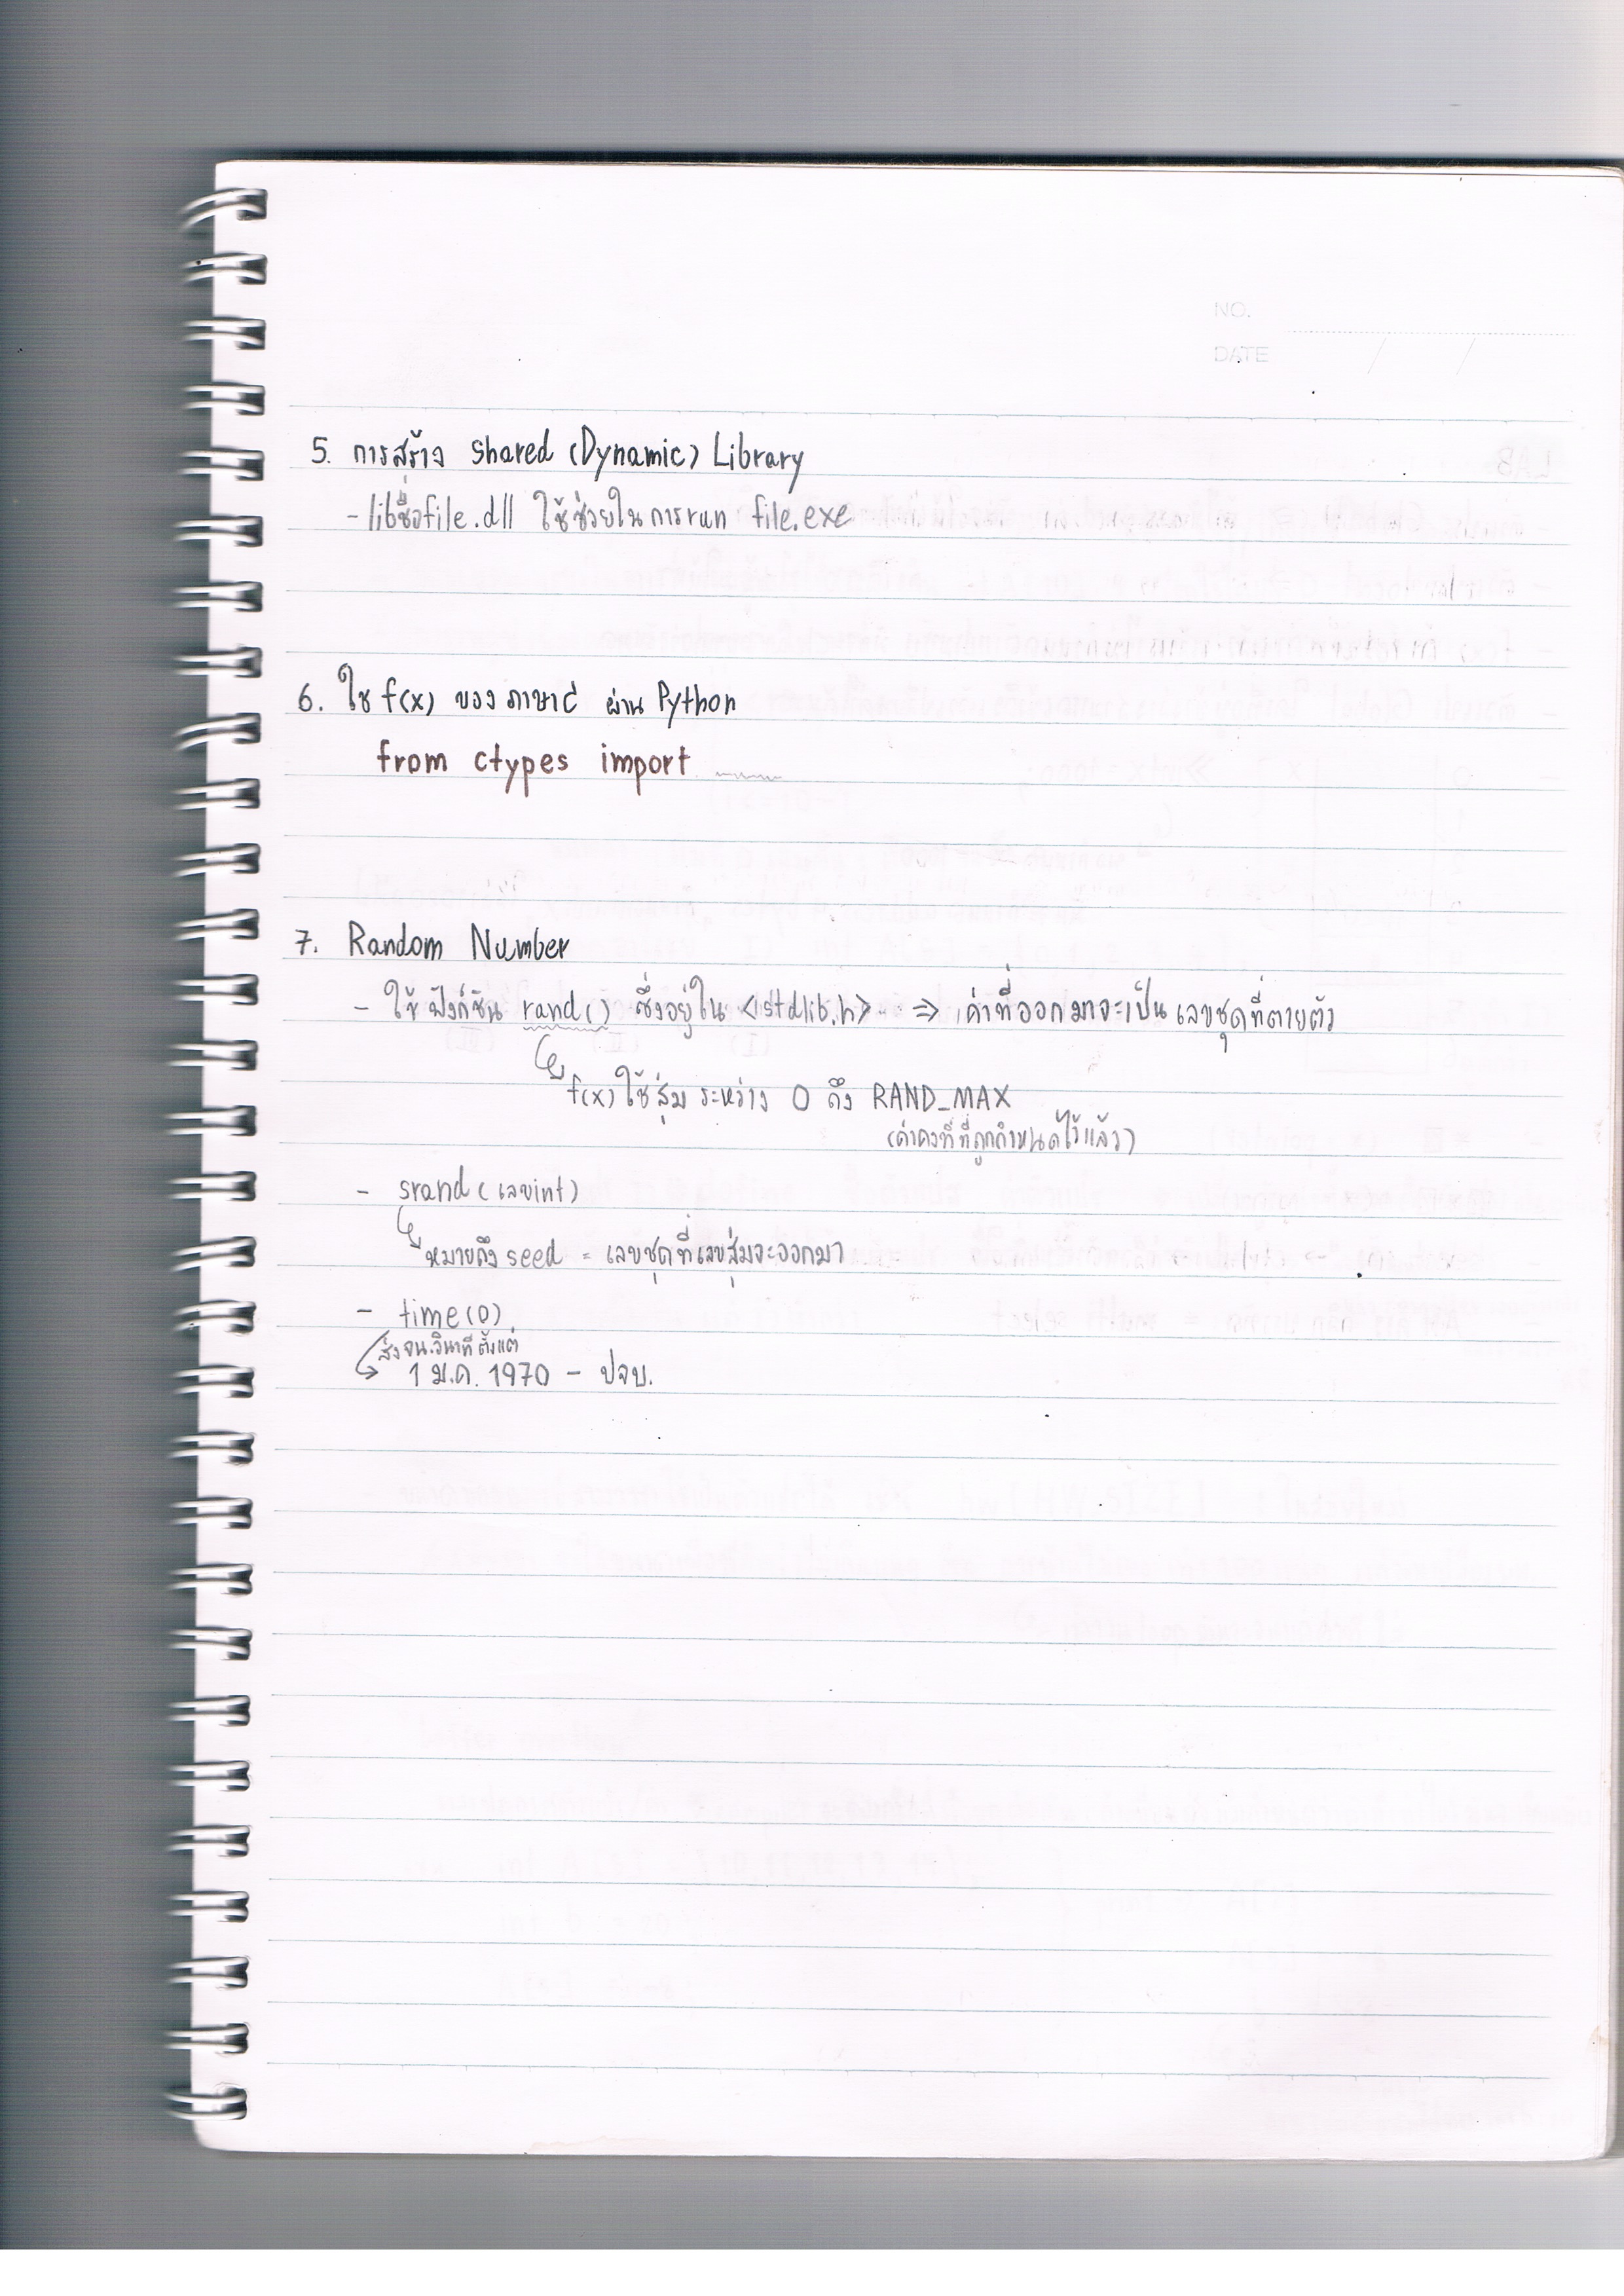 NO.
DATE / /
5. การสร้าง Shared (Dynamic) Library
- libชื่อfile.dll ใช้ช่วยในการ run file.exe
6. ใช้ f(x) ของ ภาษาC ผ่าน Python
from ctypes import
7. Random Number
- ใช้ ฟังก์ชัน rand() ซึ่งอยู่ใน <stdlib.h> => ค่าที่ออกมาจะเป็น เลขชุดที่ตายตัว
f(x) ใช้สุ่ม ระหว่าง 0 ถึง RAND_MAX
(ค่าคงที่ที่ถูกกำหนดไว้แล้ว)
- srand (เลขint)
หมายถึง seed = เลขชุดที่เลขสุ่มจะออกมา
- time(0)
ส่ง จน.วินาที ตั้งแต่
1 ม.ค. 1970 - ปจบ.